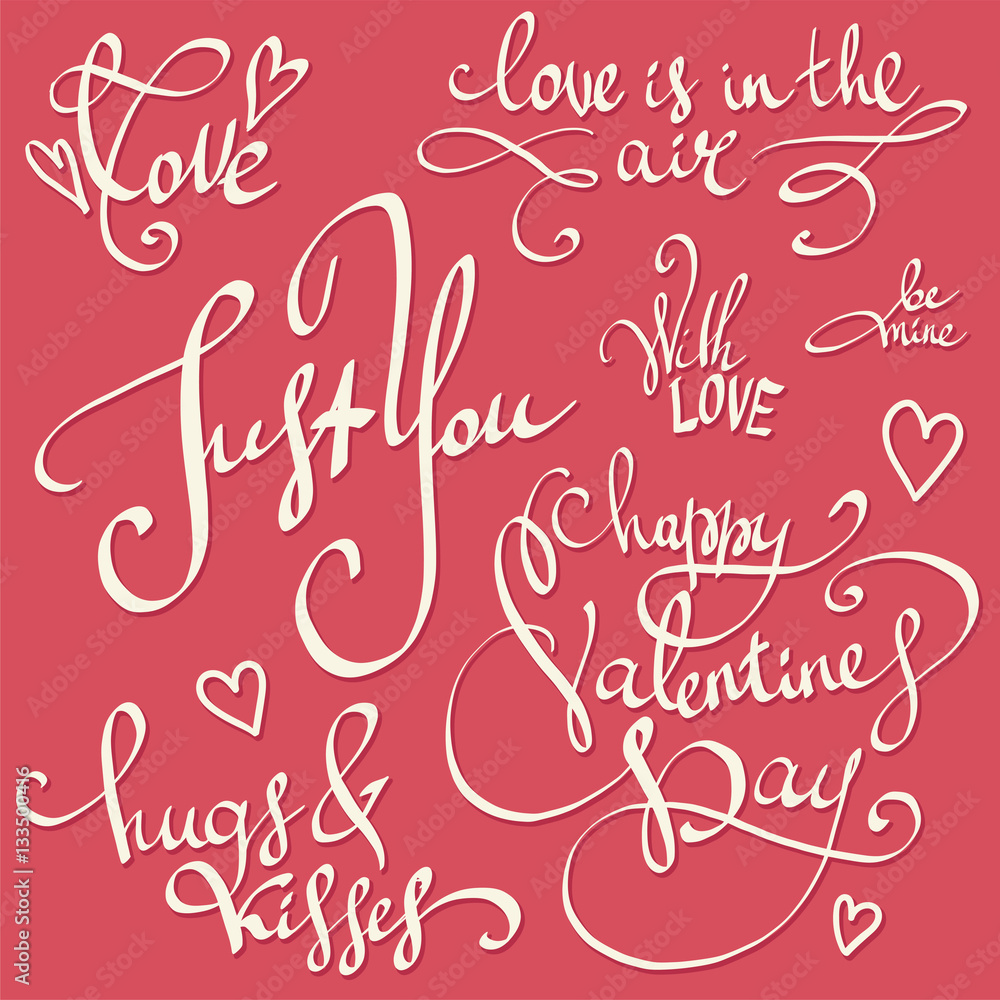 Love
love is in the
air
Just You
With
LOVE
be
mine
happy
Valentines
Day
hugs &
Kisses
Adobe Stock | #133500416